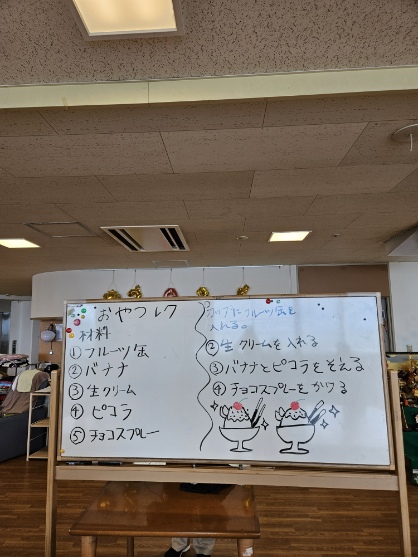 おやつレク
材料
① フルーツ缶
② バナナ
③ 生クリーム
④ ピコラ
⑤ チョコスプレー
カップにフルーツ缶を
入れる。
② 生クリームを入れる
③ バナナとピコラをそえる
④ チョコスプレーをかける